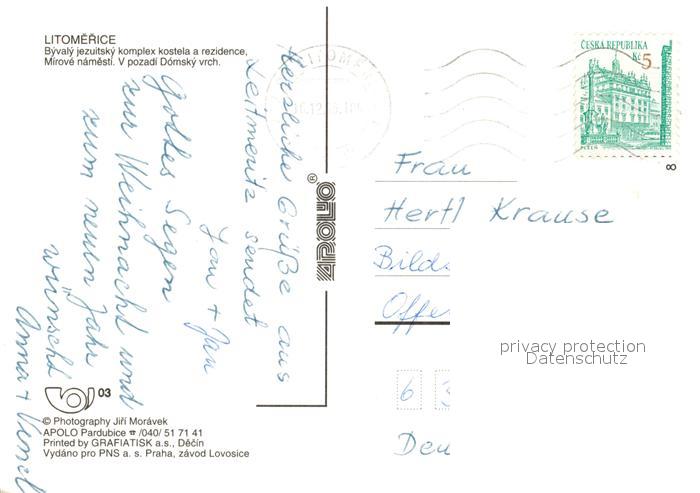 LITOMĚŘICE
Bývalý jezuitský komplex kostela a rezidence,
Mírové náměstí. V pozadí Dómský vrch.
Herzliche Grüße aus
Leitmeritz sendet
Jan + Jan
Gottes Segen
zur Weihnacht und
zum neuen Jahr
wünscht
Anna +
APOLO®
ČESKÁ REPUBLIKA
Kč 5
PLZEŇ
8
Frau
Hertl Krause
Bilds
Offe
6 3
Deu
privacy protection
Datenschutz
03
© Photography Jiří Morávek
APOLO Pardubice ☎ /040/ 51 71 41
Printed by GRAFIATISK a.s., Děčín
Vydáno pro PNS a. s. Praha, závod Lovosice